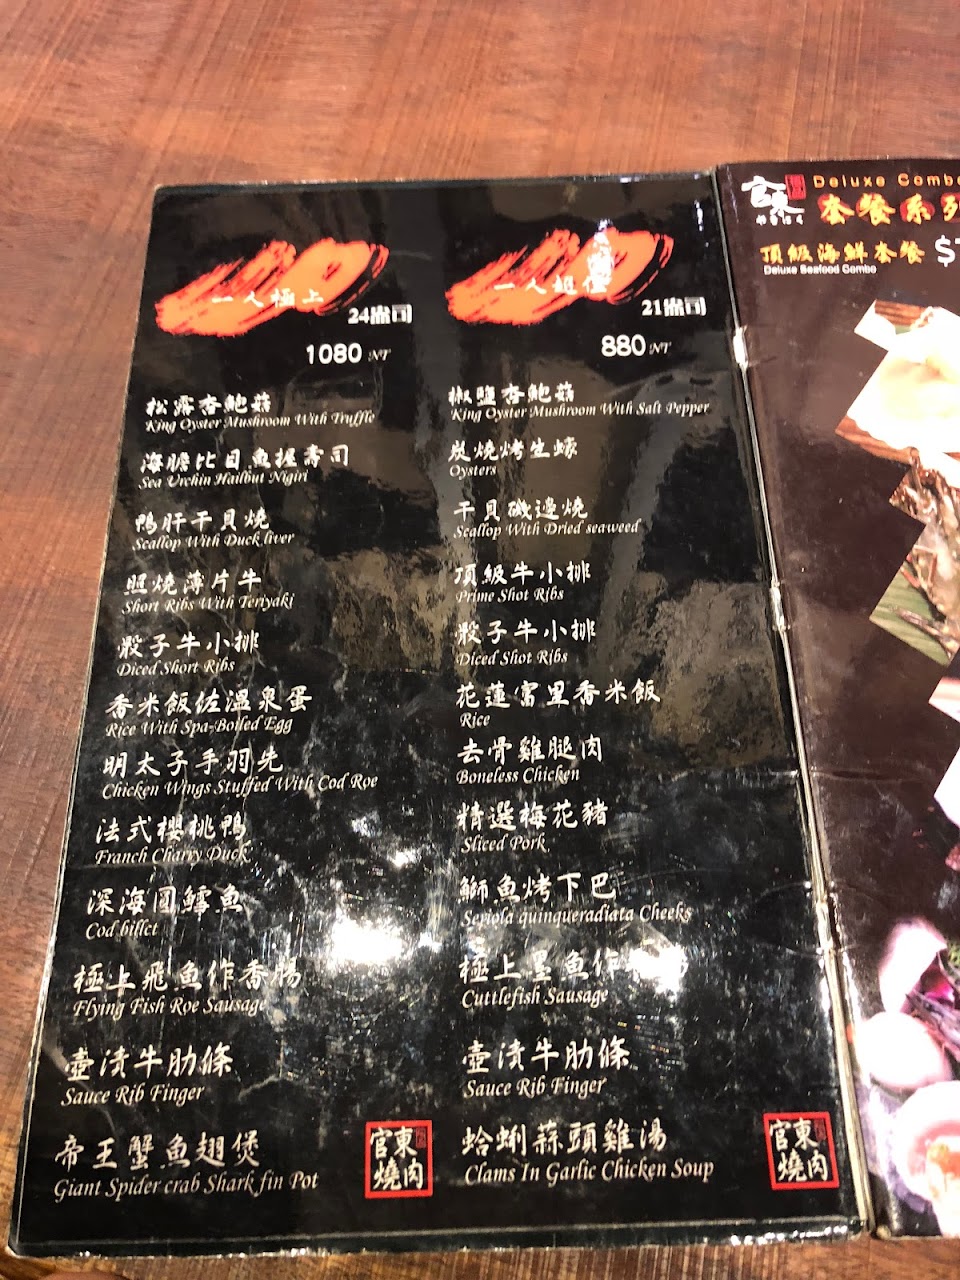 一人極上
24盎司
1080 NT
松露杏鮑菇
King Oyster Mushroom With Truffle
海膽比目魚握壽司
Sea Urchin Hailbut Nigiri
鴨肝干貝燒
Scallop With Duck liver
照燒薄片牛
Short Ribs With Teriyaki
骰子牛小排
Diced Short Ribs
香米飯佐溫泉蛋
Rice With Spa-Boiled Egg
明太子手羽先
Chicken Wings Stuffed With Cod Roe
法式櫻桃鴨
Franch Charry Duck
深海圓鱈魚
Cod billct
極上飛魚作香腸
Flying Fish Roe Sausage
壺漬牛肋條
Sauce Rib Finger
帝王蟹魚翅煲
Giant Spider crab Shark fin Pot
官東
燒肉
一人超值
21盎司
880 NT
椒鹽杏鮑菇
King Oyster Mushroom With Salt Pepper
炭燒烤生蠔
Oysters
干貝磯邊燒
Scallop With Dried seaweed
頂級牛小排
Prime Shot Ribs
骰子牛小排
Diced Shot Ribs
花蓮富里香米飯
Rice
去骨雞腿肉
Boneless Chicken
精選梅花豬
Sliced Pork
鰤魚烤下巴
Seriola quinqueradiata Cheeks
極上墨魚作
Cuttlefish Sausage
壺漬牛肋條
Sauce Rib Finger
蛤蜊蒜頭雞湯
Clams In Garlic Chicken Soup
官東
燒肉
官東
やきにく
Deluxe Combo
套餐系列
頂級海鮮套餐 $
Deluxe Seafood Combo